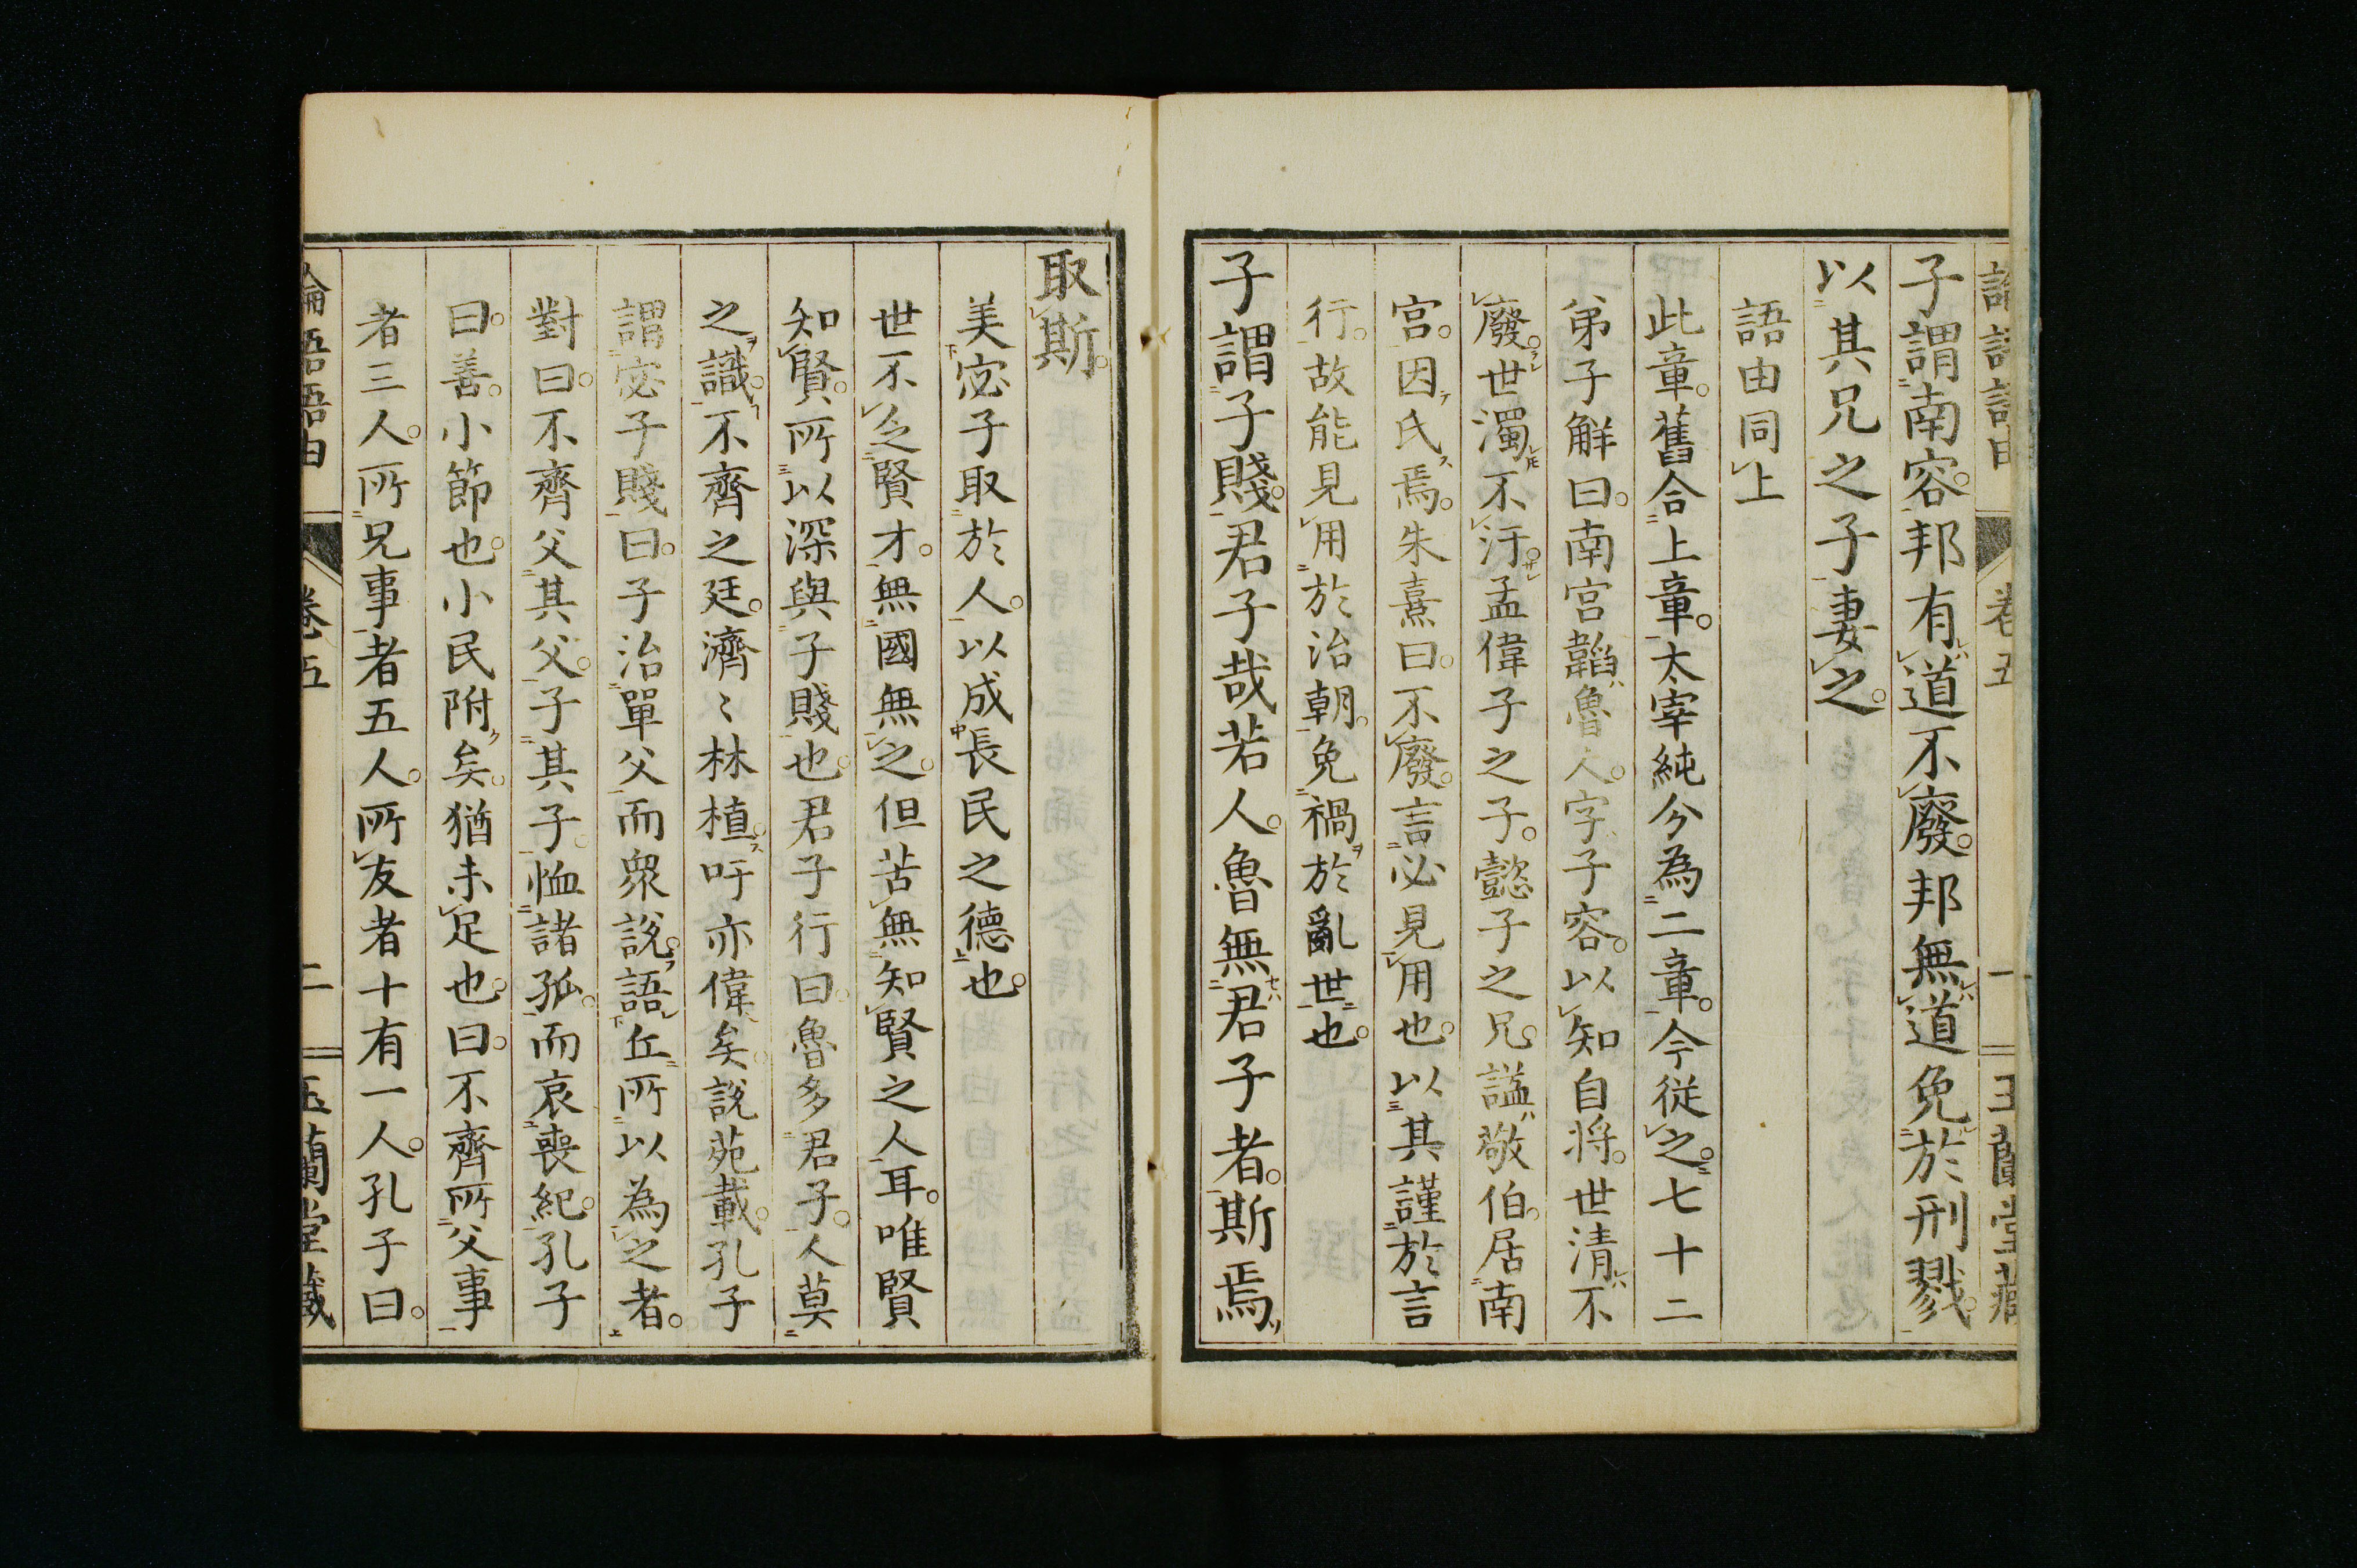 子謂南容。邦有道不廢。邦無道免於刑戮。
以其兄之子妻之。
語由同上
此章。舊合上章。太宰純分為二章。今從之。七十二
弟子解曰。南宮韜魯人。字子容。以知自將。世清不
廢。世濁不汙。孟偉子之子。懿子之兄。謚敬伯。居南
宮。因氏焉。朱熹曰。不廢。言必見用也。以其謹於言
行。故能見用於治朝。免禍於亂世也。
子謂子賤。君子哉若人。魯無君子者。斯焉
取斯。
美宓子取於人。以成長民之德也。
世不乏賢才。無國無之。但苦無知賢之人耳。唯賢
知賢。所以深與子賤也。君子行曰。魯多君子。人莫
之識。不齊之廷。濟〻林植。吁亦偉矣。說苑載。孔子
謂宓子賤曰。子治單父而眾說。語丘所以為之者。
對曰。不齊父其父。子其子。恤諸孤。而哀喪紀。孔子
曰。善。小節也。小民附矣。猶未足也。曰。不齊所父事
者三人。所兄事者五人。所友者十有一人。孔子曰。
論語語由 卷五 二 玉蘭堂藏